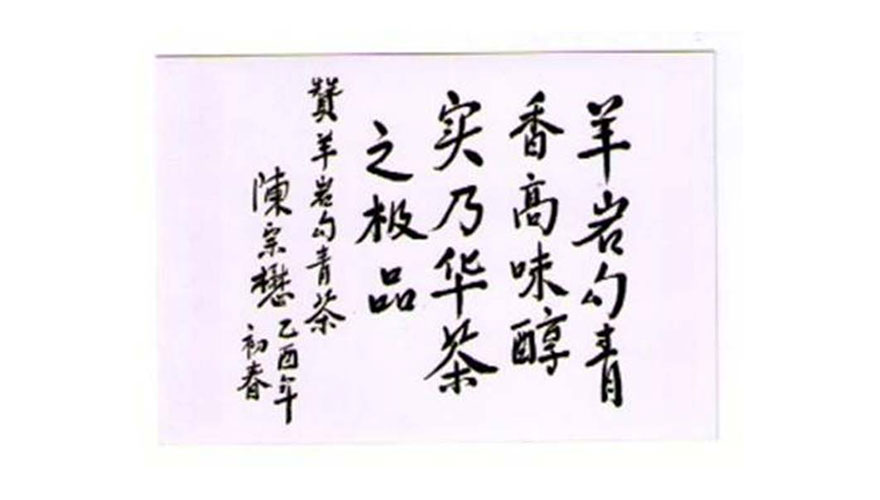 羊岩勾青
香高味醇
实乃华茶
之极品
赞羊岩勾青茶
陳宗懋乙酉年
初春